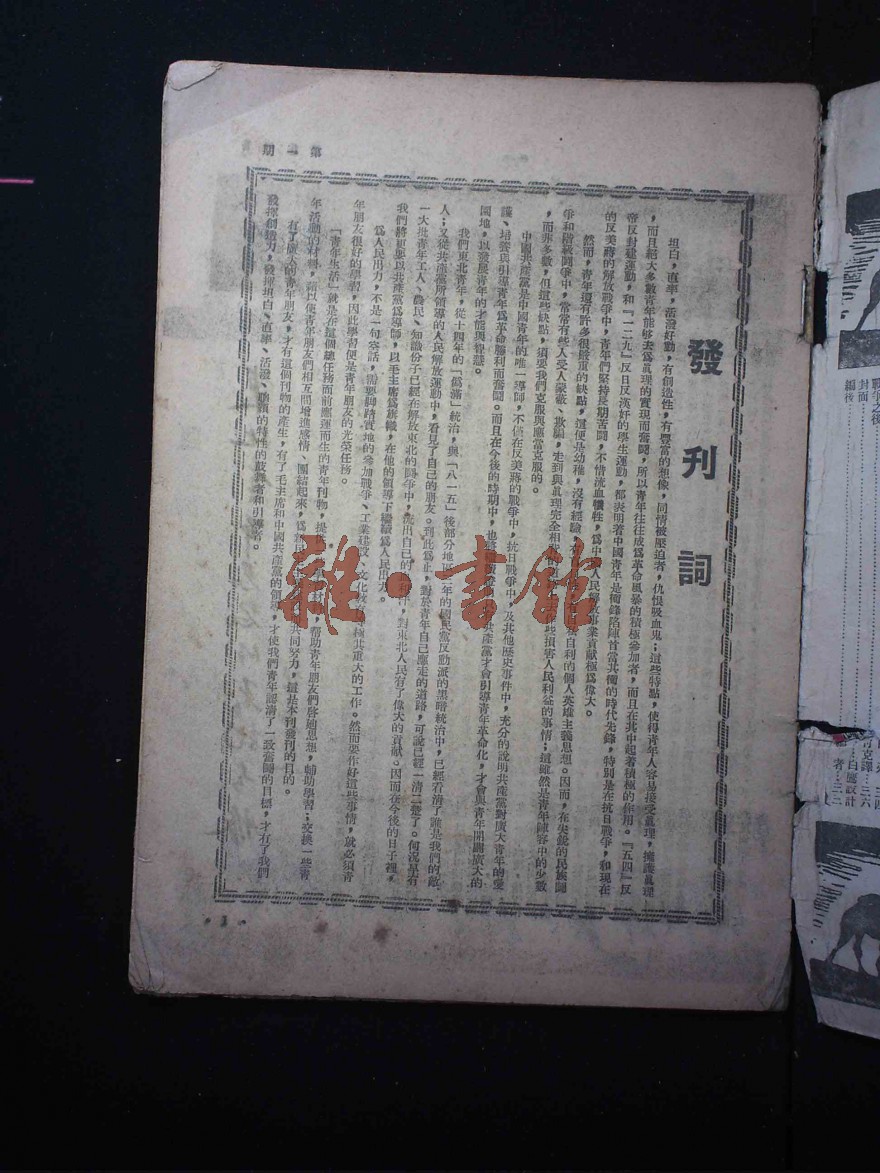 第一期
發刊詞
坦白，直率，活潑好動，有創造性，有豐富的想像，同情被壓迫者，仇恨吸血鬼；這些特點，使得青年人容易接受眞理，擁護眞理
，而且絕大多數青年能夠去爲眞理的實現而奮鬪，所以青年往往成爲革命風暴的積極參加者，而且在其中起着積極的作用。『五四』反
帝反封建運動，和『一二九』反日反漢奸的學生運動，都表明着中國青年是衝鋒陷陣首當其衝的時代先鋒，特別是在抗日戰爭，和現在
的反美蔣的解放戰爭中，青年們堅持長期苦鬪，不惜流血犧牲，爲中國人民解放事業貢獻極爲偉大。
然而，青年還有許多很嚴重的缺點，這便是幼稚，沒有經驗，自利的個人英雄主義思想。因而，在尖銳的民族鬪
爭和階級鬪爭中，常常有些人受人蒙蔽、欺騙，走到與眞理完全相 些損害人民利益的事情；這雖然是青年陣容中的少數
，而非多數，但這些缺點，須要我們克服與應當克服的。
中國共產黨是中國青年的唯一導師，不僅在反美蔣的戰爭中，抗日戰爭中，及其他歷史事件中，充分的說明共產黨對廣大青年的愛
護、培養與引導青年爲革命勝利而奮鬪。而且在今後的時期中，也 共產黨才會引導青年革命化，才會與青年開闢廣大的
園地，以發展青年的才能與智慧。
我們東北青年，從十四年的「僞滿」統治，與「八一五」後部分地區 年的國民黨反動派的黑暗統治中，已經看清了誰是我們的敵
人；又從共產黨所領導的人民解放運動中，看見了自己的朋友。到此爲止，對於青年自己應走的道路，可說已經一清二楚了。何況是有
一大批青年工人、農民、知識份子已經在解放東北的鬪爭中，流出自己的 汗，對東北人民有了偉大的貢獻。因而在今後的日子裡，
我們將更要以共產黨爲導師，以毛主席爲旗幟，在他的領導下繼續爲人民出力。
爲人民出力，不是一句空話，需要脚踏實地的參加戰爭、工業建設、文化教育 極其重大的工作。然而要作好這些事情，就必須青
年朋友很好的學習，因此學習便是青年朋友的光榮任務。
「青年生活」就是在這個總任務而前應運而生的青年刊物，提 幫助青年朋友們啓迪思想，輔助學習；交換一些青
年活動的材料，藉以使青年朋友們相互間增進感情、團結起來，爲 共同努力，這是本刊發刊的目的。
有了廣大的青年朋友，才有這個刊物的產生，有了毛主席和中國共產黨的領導，才使我們青年認清了一致奮鬪的目標，才有了我們
發揮創造力，發揮坦白、直率、活潑、 的特性的鼓舞者和引導者。
1
戰爭之後
封面
編後
白鷹設計
三四
三六
三二
雜·書館